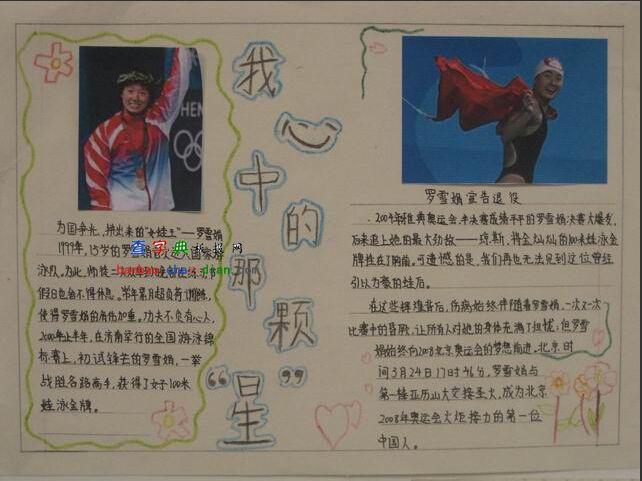 我心中的那颗“星”
为国争光,拼出来的“女蛙王”——罗雪娟
1997年,15岁的罗雪娟
国家游
泳队。为此,
假日也会不得休息。常年累月超负荷训练,
使得罗雪娟的肩伤加重,功夫不负有心人,
2000年上半年,在济南举行的全国游泳锦
标赛上,初试锋芒的罗雪娟,一举
战胜各路高手,获得了女子100米
蛙泳金牌。
查字典手抄报网
罗雪娟宣告退役
2004年雅典奥运会,半决赛成绩平平的罗雪娟决赛大爆发,
后来追上她的最大劲敌——琼斯,将金灿灿的100米蛙泳金
牌挂在了胸前。可遗憾的是,我们再也无法见到这位曾经
引以为豪的蛙后。
在这些辉煌背后,伤病始终伴随着罗雪娟。一次又一次
比赛中的昏厥,让所有人对她的身体充满了担忧;但罗雪
娟始终向2008北京奥运会的梦想前进。北京时
间3月24日17时46分,罗雪娟与
第一棒亚历山大交接圣火,成为北京
2008年奥运会火炬接力的第一位
中国人。